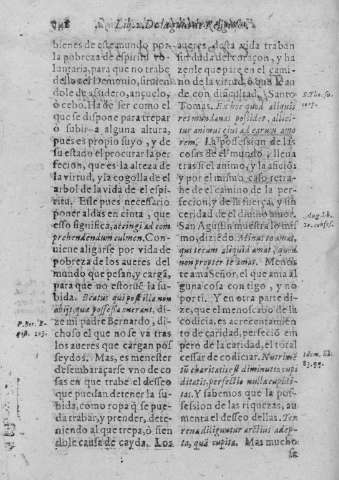 Lib. 2. De la
bienes de este mundo por
la pobreza de espiritu vo
luntaria, para que no trabe
dello el Demonio, siruien
dole de assidero, anzuelo,
ò cebo. Ha de ser como el
que se dispone para trepar
ò subir à alguna altura,
pues es proprio suyo, y de
su estado el procurar la per
fecion, que es la alteza de
la virtud, y la cogolla de el
arbol de la vida de el espi-
ritu. Esle pues necessario
poner aldas en cinta, que
esso significa, atingi ad com
prehendendum culmen. Con
uiene aligarse por vida de
pobreza de los aueres del
mundo que pesan, y carga,
para que no estorue la su-
bida. Beatus qui post illa non
abijt, quæ possessa onerant, di
ze mi padre Bernardo, di-
choso el que no se va tras
los aueres que cargan pos
seydos. Mas, es menester
desembaraçarse vno de co
sas en que trabe el desseo
que puedan detener la su-
bida, como ropa q̃ se pue-
da trabar, y prender, dete-
niendo al que trepa, ò sien
dole causa de cayda. Los
P. Ber. E-
pist. 103.
aueres, desta vida traban
sin duda del coraçon, y ha
zenle que pare en el cami-
no de la virtud, ò que
de con dificultad. Santo
Tomas. Ex hoc quod aliquis
res mundanas possidet, allici-
tur animus eius ad earum amo
rem. La possession de las
cosas de el mundo, llena
tras si el animo, y la aficiò
y por el mismo caso retra-
he de el camino de la per-
fecion, y de la fuerça, y sin
ceridad de el diuino amor.
San Agustin muestra lo mis
mo, diziẽdo. Minus te amat,
qui tecum aliquid amat, quod
non propter te amat. Menos
te ama Señor, el que ama al
guna cosa con tigo, y no
por ti. Y en otra parte di-
ze, que el menoscabo de la
codicia, es acrecentamien
to de caridad, perfeciò em
pero de la caridad, el total
cessar de codiciar. Nutrimẽ
tũ charitatis est diminutio cupi
ditatis, perfectio nulla cupidi-
tas. Y sabemos que la pos-
session de las riquezas, au
menta el desseo dellas. Ter
rena diliguntur arctius adep-
ta, quã cupita. Mas mucho
se
S. Tho. su.
Aug. lib.
10. confes.
Idem. lib.
83. qq.